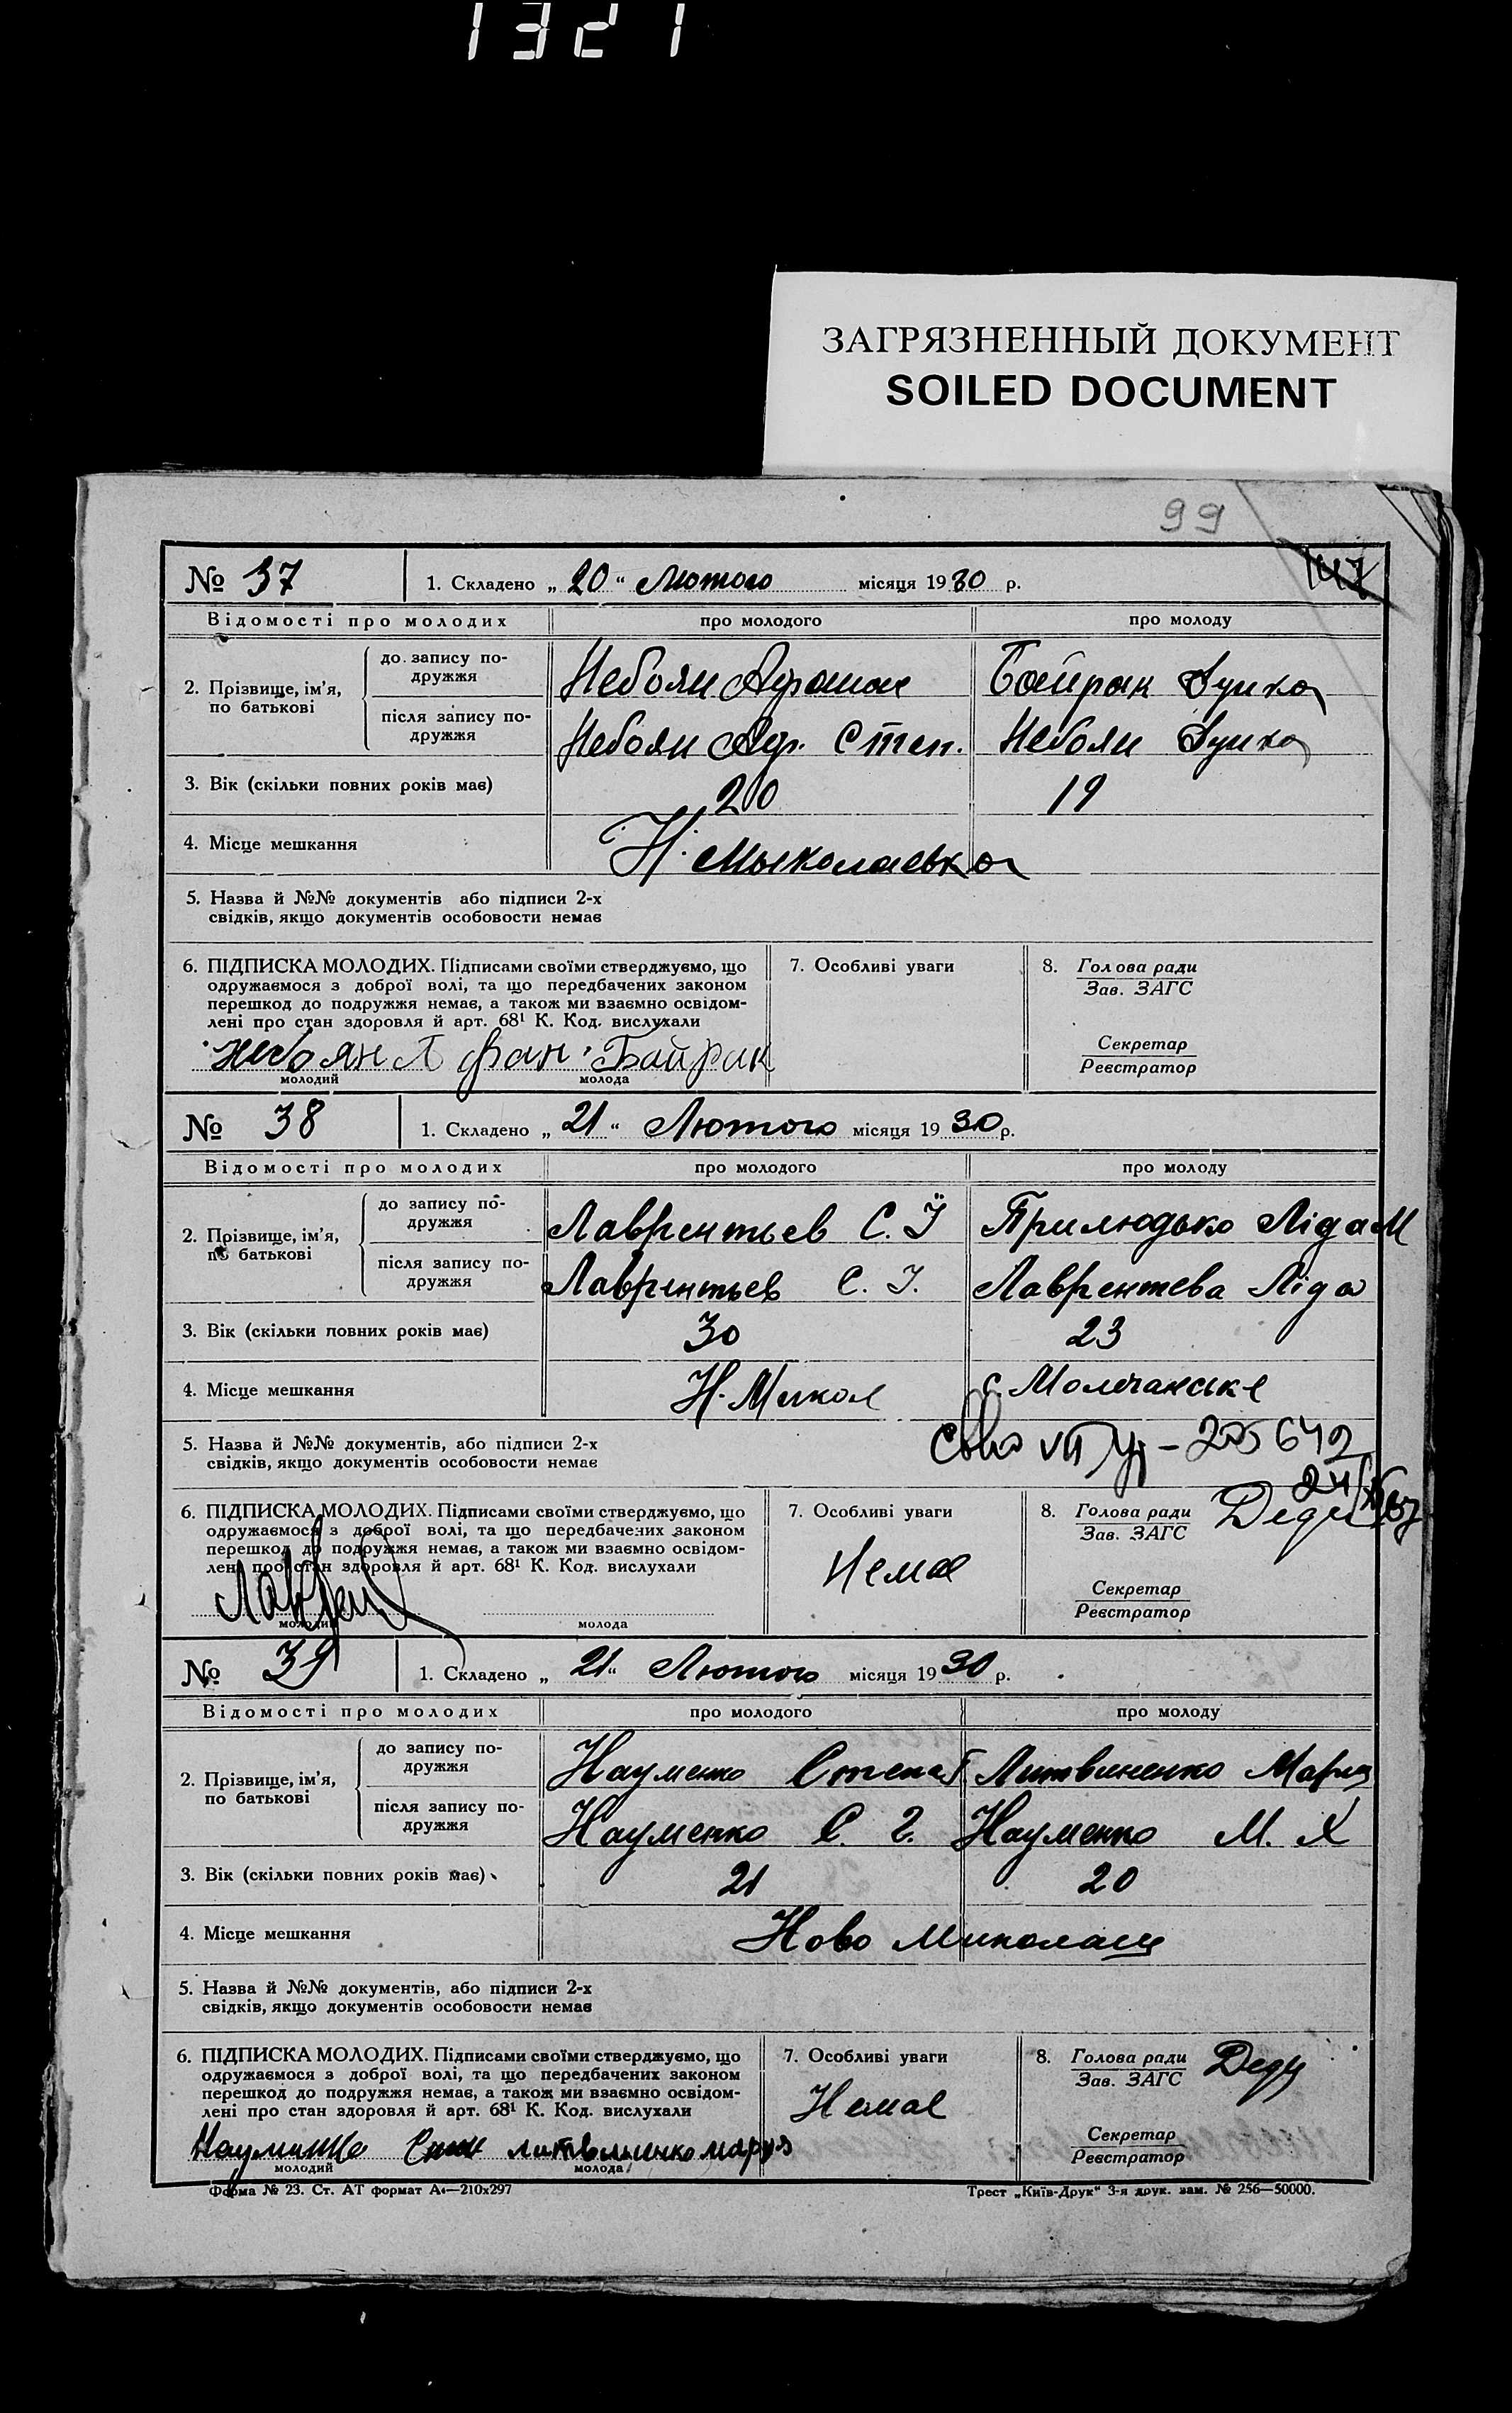 1321
ЗАГРЯЗНЕННЫЙ ДОКУМЕНТ
SOILED DOCUMENT
99
147
№ 37 1. Складено „ 20 “ Лютого місяця 1930 р.
Відомості про молодих про молодого про молоду
2. Прізвище, ім'я, по батькові
до запису подружжя Небоян Афанас Байрак
після запису подружжя Небоян Аф. Степ. Небоян
3. Вік (скільки повних років має) 20 19
4. Місце мешкання Н. Миколаевка
5. Назва й №№ документів або підписи 2-х
свідків, якщо документів особовости немає
6. ПІДПИСКА МОЛОДИХ. Підписами своїми стверджуємо, що
одружаємося з доброї волі, та що передбачених законом
перешкод до подружжя немає, а також ми взаємно освідом-
лені про стан здоровля й арт. 68¹ К. Код. вислухали
7. Особливі уваги
8. Голова ради
Зав. ЗАГС
Секретар
Реєстратор
Небоян Афан. Байрак
молодий молода
№ 38 1. Складено „ 21 “ Лютого місяця 1930 р.
Відомості про молодих про молодого про молоду
2. Прізвище, ім'я, по батькові
до запису подружжя Лаврентьев С. Ї Прилюдько Ліда М
після запису подружжя Лаврентьев С. І. Лаврентева Ліда
3. Вік (скільки повних років має) 30 23
4. Місце мешкання Н. Микол с. Молочанське
5. Назва й №№ документів, або підписи 2-х
свідків, якщо документів особовости немає
6. ПІДПИСКА МОЛОДИХ. Підписами своїми стверджуємо, що
одружаємося з доброї волі, та що передбачених законом
перешкод до подружжя немає, а також ми взаємно освідом-
лені про стан здоровля й арт. 68¹ К. Код. вислухали
7. Особливі уваги
Немає
8. Голова ради
Зав. ЗАГС
Секретар
Реєстратор
молодий молода
№ 39 1. Складено „ 21 “ Лютого місяця 1930 р.
Відомості про молодих про молодого про молоду
2. Прізвище, ім'я, по батькові
до запису подружжя Науменко Степан Литвиненко Мария
після запису подружжя Науменко С. Г. Науменко М. Х
3. Вік (скільки повних років має) 21 20
4. Місце мешкання Ново Миколаш
5. Назва й №№ документів, або підписи 2-х
свідків, якщо документів особовости немає
6. ПІДПИСКА МОЛОДИХ. Підписами своїми стверджуємо, що
одружаємося з доброї волі, та що передбачених законом
перешкод до подружжя немає, а також ми взаємно освідом-
лені про стан здоровля й арт. 68¹ К. Код. вислухали
7. Особливі уваги
Немає
8. Голова ради
Зав. ЗАГС
Секретар
Реєстратор
молодий молода
Форма № 23. Ст. АТ формат А₄—210х297 Трест „Київ-Друк“ 3-я друк. зам. № 256—50000.